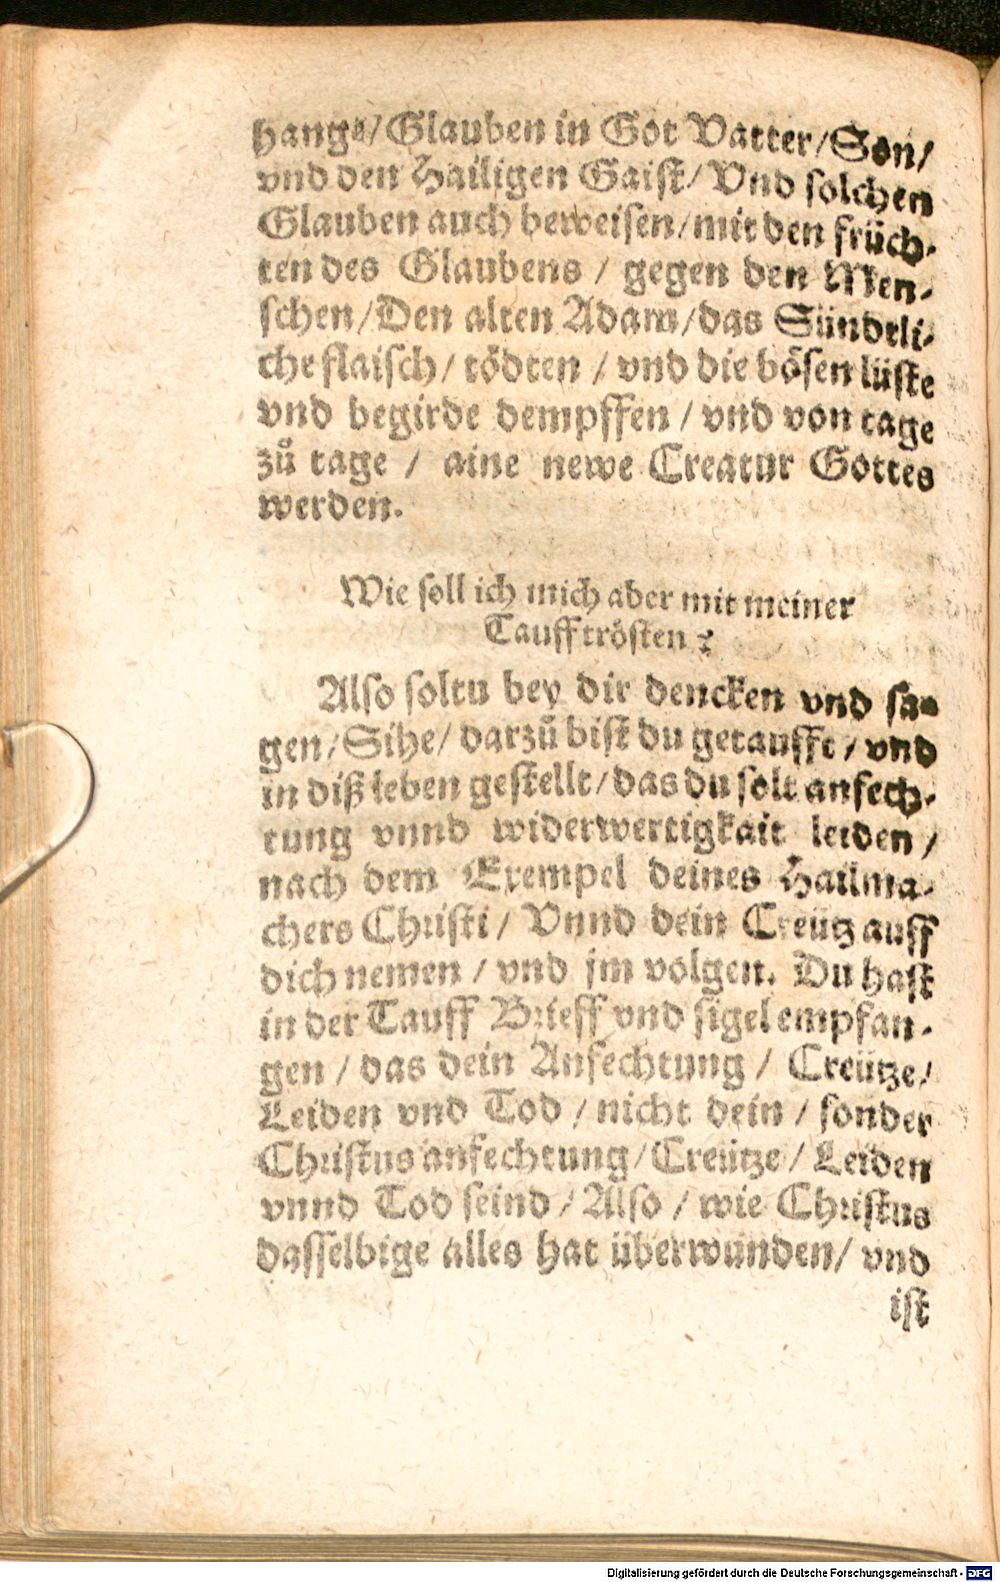 hange/Glauben in Got Vatter/Son/
vnd den Hailigen Gaist/Vnd solchen
Glauben auch beweisen/mit den früch-
ten des Glaubens / gegen den Men-
schen/Den alten Adam/das Sündtli-
che flaisch/ tödten / vnd die bösen lüste
vnd begirde dempffen / vnd von tage
zů tage / aine newe Creatur Gottes
werden.
Wie soll ich mich aber mit meiner
Tauff trösten?
Also soltu bey dir dencken vnd sa-
gen/Sihe/ darzů bist du getaufft / vnd
in diß leben gestellt/das du solt anfech-
tung vnnd widerwertigkait leiden /
nach dem Exempel deines Hailma-
chers Christi/ Vnnd dein Creütz auff
dich nemen / vnd jm volgen. Du hast
in der Tauff Brieff vnd sigel empfan-
gen / das dein Anfechtung / Creütze/
Leiden vnd Tod / nicht dein / sonder
Christus anfechtung/Creütze / Leiden
vnnd Tod seind / Also / wie Christus
dasselbige alles hat überwunden/ vnd
ist
Digitalisierung gefördert durch die Deutsche Forschungsgemeinschaft - DFG